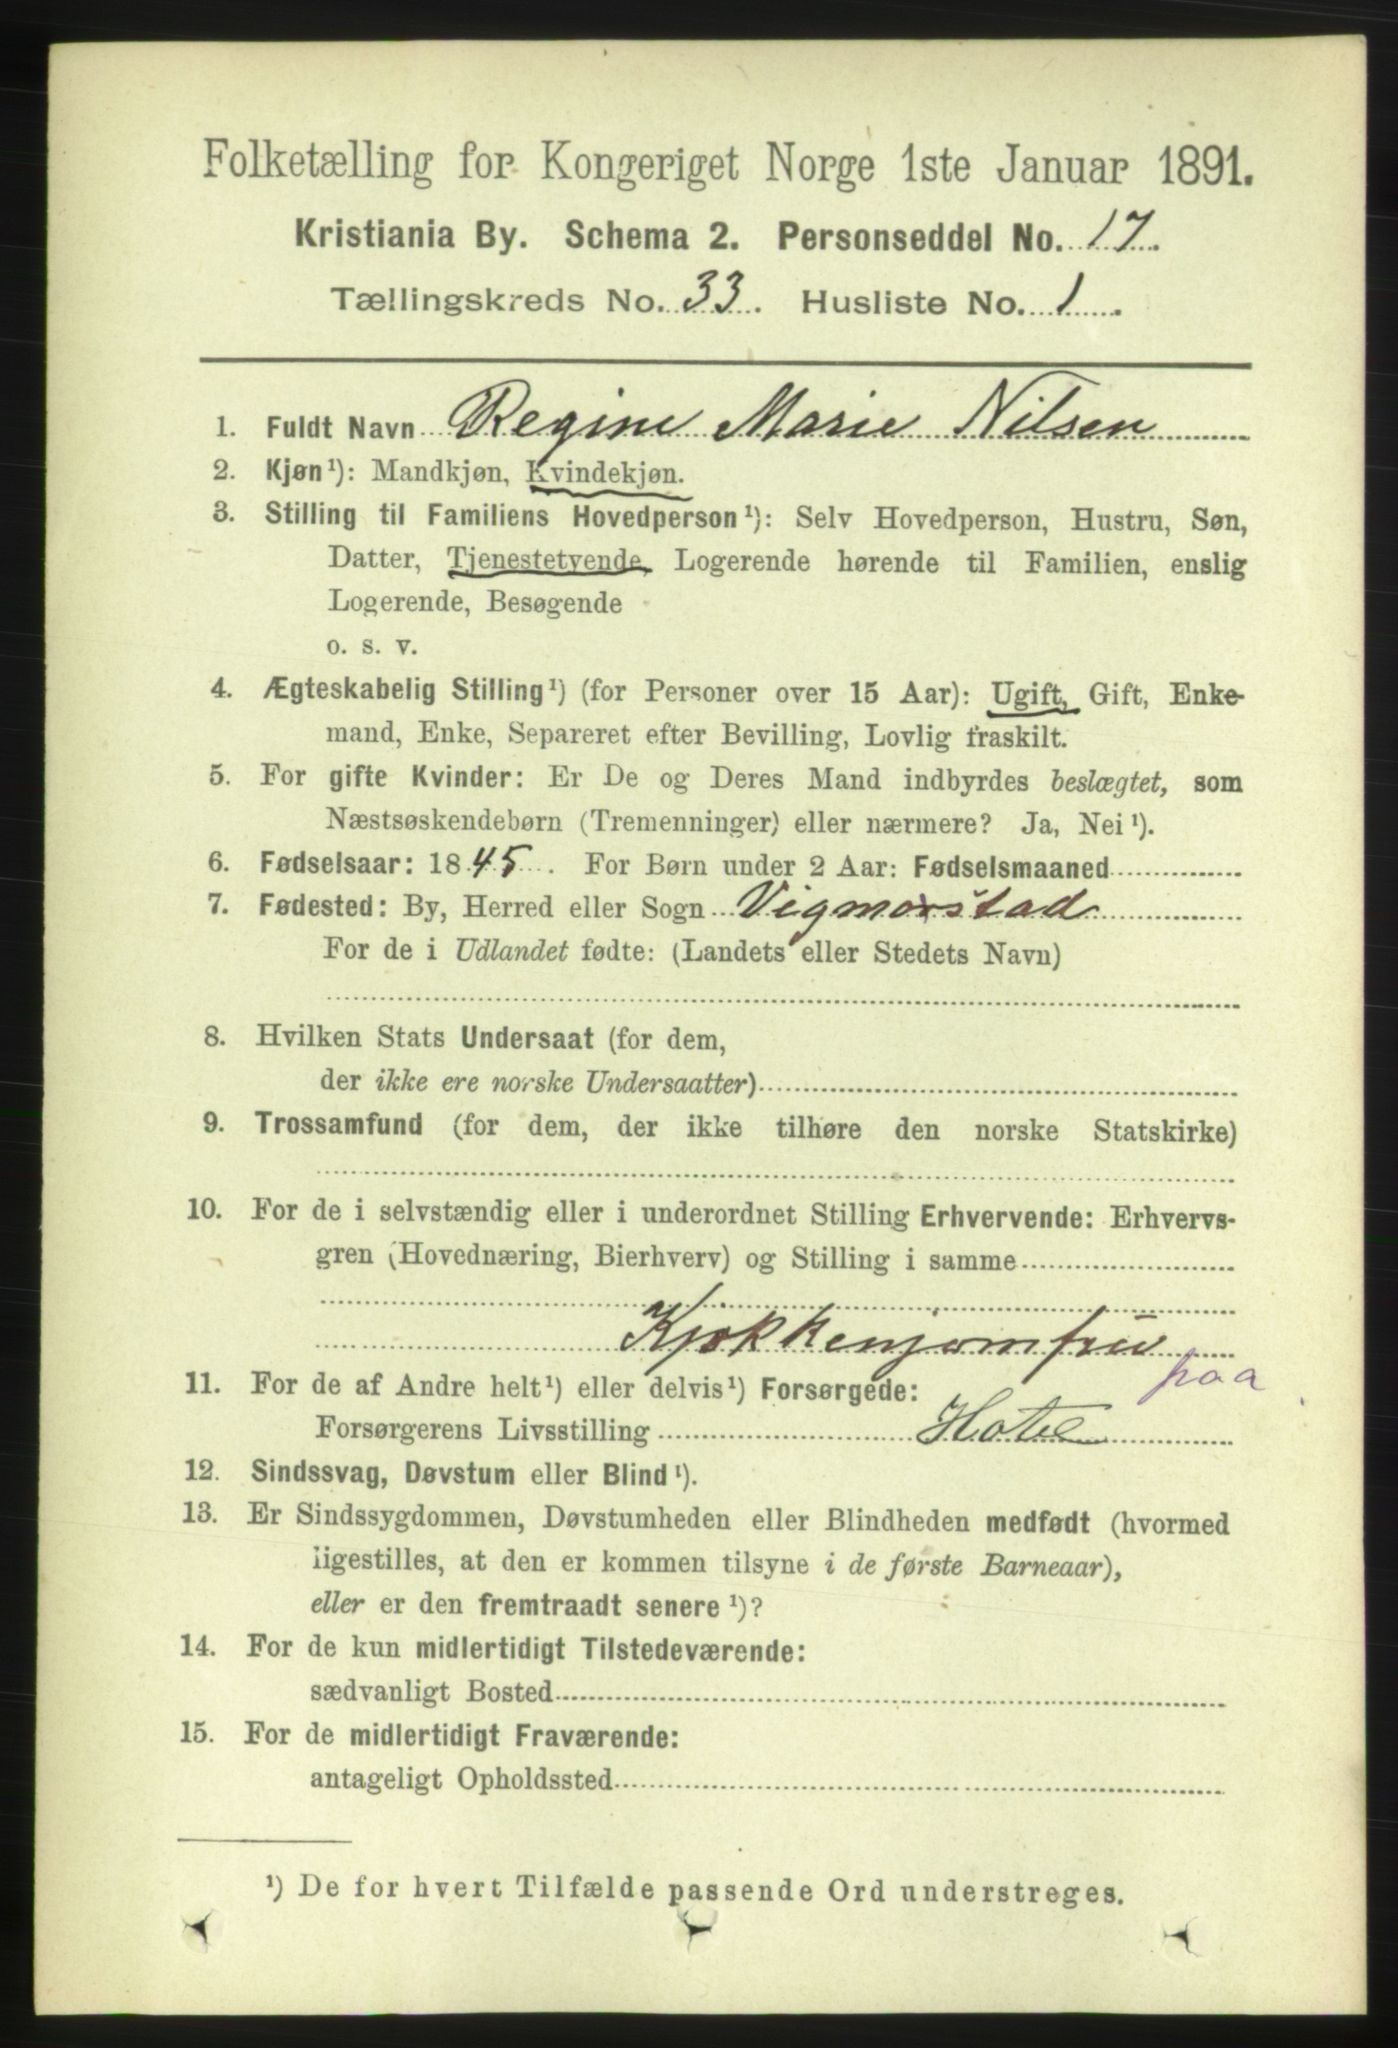 Folketælling for Kongeriget Norge 1ste Januar 1891.
Kristiania By. Schema 2. Personseddel No. 17.
Tællingskreds No. 33. Husliste No. 1.
1. Fuldt Navn Regine Marie Nilsen
2. Kjøn¹): Mandkjøn, Kvindekjøn.
3. Stilling til Familiens Hovedperson¹): Selv Hovedperson, Hustru, Søn,
Datter, Tjenestetyende, Logerende hørende til Familien, enslig
Logerende, Besøgende
o. s. v.
4. Ægteskabelig Stilling¹) (for Personer over 15 Aar): Ugift, Gift, Enke-
mand, Enke, Separeret efter Bevilling, Lovlig fraskilt.
5. For gifte Kvinder: Er De og Deres Mand indbyrdes beslægtet, som
Næstsøskendebørn (Tremenninger) eller nærmere? Ja, Nei¹).
6. Fødselsaar: 1845. For Børn under 2 Aar: Fødselsmaaned
7. Fødested: By, Herred eller Sogn Vigmorstad
For de i Udlandet fødte: (Landets eller Stedets Navn)
8. Hvilken Stats Undersaat (for dem,
der ikke ere norske Undersaatter)
9. Trossamfund (for dem, der ikke tilhøre den norske Statskirke)
10. For de i selvstændig eller i underordnet Stilling Erhvervende: Erhvervs-
gren (Hovednæring, Bierhverv) og Stilling i samme
Kjøkkenjomfru paa
11. For de af Andre helt¹) eller delvis¹) Forsørgede:
Forsørgerens Livsstilling Hotel
12. Sindssvag, Døvstum eller Blind¹).
13. Er Sindssygdommen, Døvstumheden eller Blindheden medfødt (hvormed
ligestilles, at den er kommen tilsyne i de første Barneaar),
eller er den fremtraadt senere¹)?
14. For de kun midlertidigt Tilstedeværende:
sædvanligt Bosted
15. For de midlertidigt Fraværende:
antageligt Opholdssted
¹) De for hvert Tilfælde passende Ord understreges.